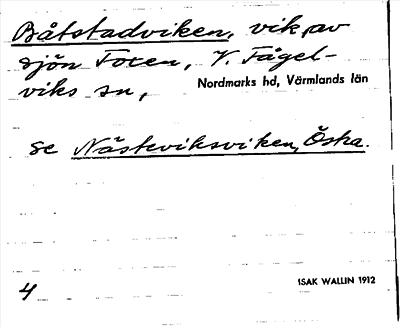 Båtstadviken, vik av
sjön Foxen, V. Fågel-
viks sn, Nordmarks hd, Värmlands län
se Nästeviksviken, Östra.
4 ISAK WALLIN 1912